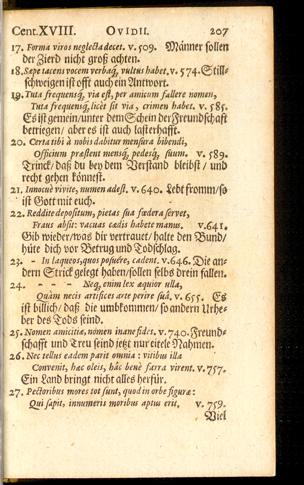 Cent. XVIII. OVIDII. 207
17. Forma viros neglecta decet. v. 509. Männer sollen
der Zierd nicht groß achten.
18. Sæpe tacens vocem verbaq́; vultus habet. v. 574. Still-
schweigen ist offt auch ein Antwort.
19. Tuta frequensq́; via est, per amicum fallere nomen,
Tuta frequensq́; licèt sit via, crimen habet. v. 585.
Es ist gemein/ unter dem Schein der Freundschaft
betriegen/ aber es ist auch lasterhafft.
20. Certa tibi à nobis dabitur mensura bibendi,
Officium præstent mensq́; pedesq́; suum. v. 589.
Trinck/ daß du bey dem Verstand bleibst/ und
recht gehen könnest.
21. Innocuè vivite, numen adest. v. 640. Lebt fromm/ so
ist Gott mit euch.
22. Reddite depositum, pietas sua fœdera servet,
Fraus absit: vacuas cædis habete manus. v. 641.
Gib wieder/ was dir vertrauet/ halte den Bund/
hüte dich vor Betrug und Todschlag.
23. - In laqueos, quos posuêre, cadent. v. 646. Die an-
dern Strick gelegt haben/ sollen selbs drein fallen.
24. - - - Neq́; enim lex æquior ulla,
Quàm necis artifices arte perire suâ. v. 655. Es
ist billich/ daß die umbkommen/ so andern Urhe-
ber des Tods seind.
25. Nomen amicitiæ, nomen inane fides. v. 740. Freund-
schafft und Treu seind jetzt nur eitele Nahmen.
26. Nec tellus eadem parit omnia: vitibus illa
Convenit, hæc oleis, hâc benè farra virent. v. 757.
Ein Land bringt nicht alles herfür.
27. Pectoribus mores tot sunt, quod in orbe figuræ:
Qui sapit, innumeris moribus aptus erit. v. 759.
Viel